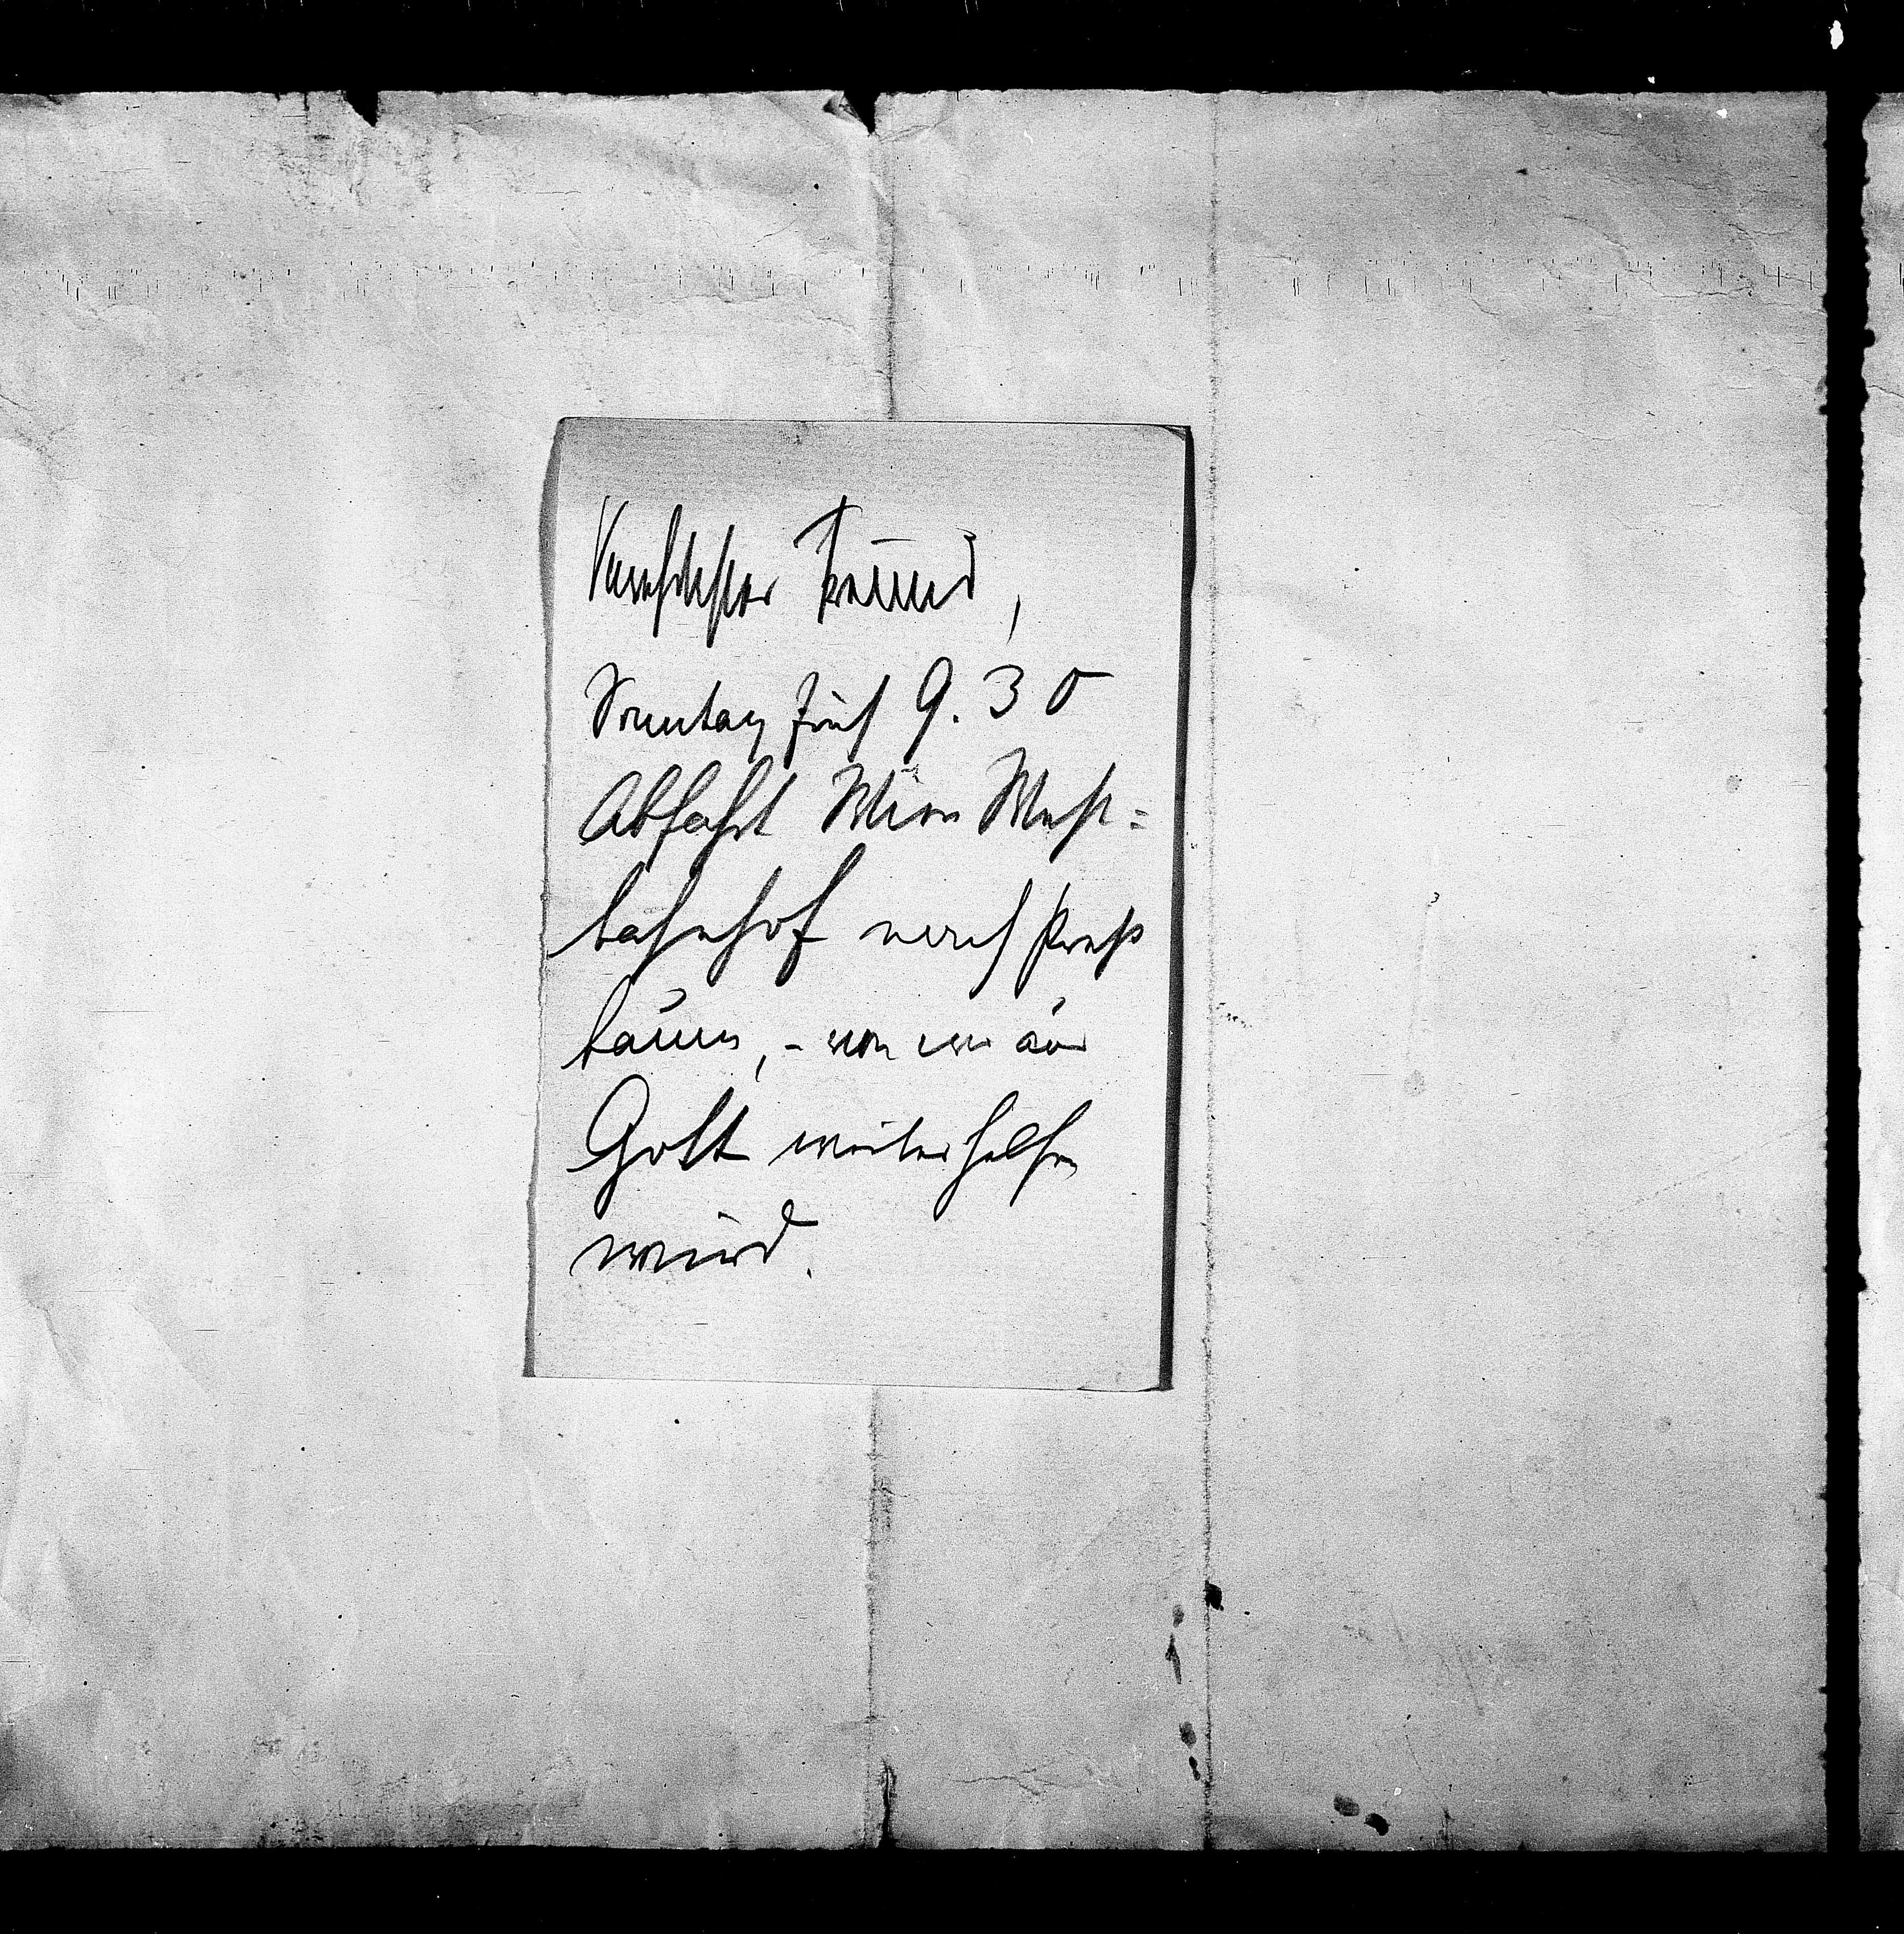 Verehrtester Freund,
Sonntag früh 9.30
Abfahrt Wien West=
bahnhof nach Press
baum, - von wo aus
Gott weiterhelfen
wird.